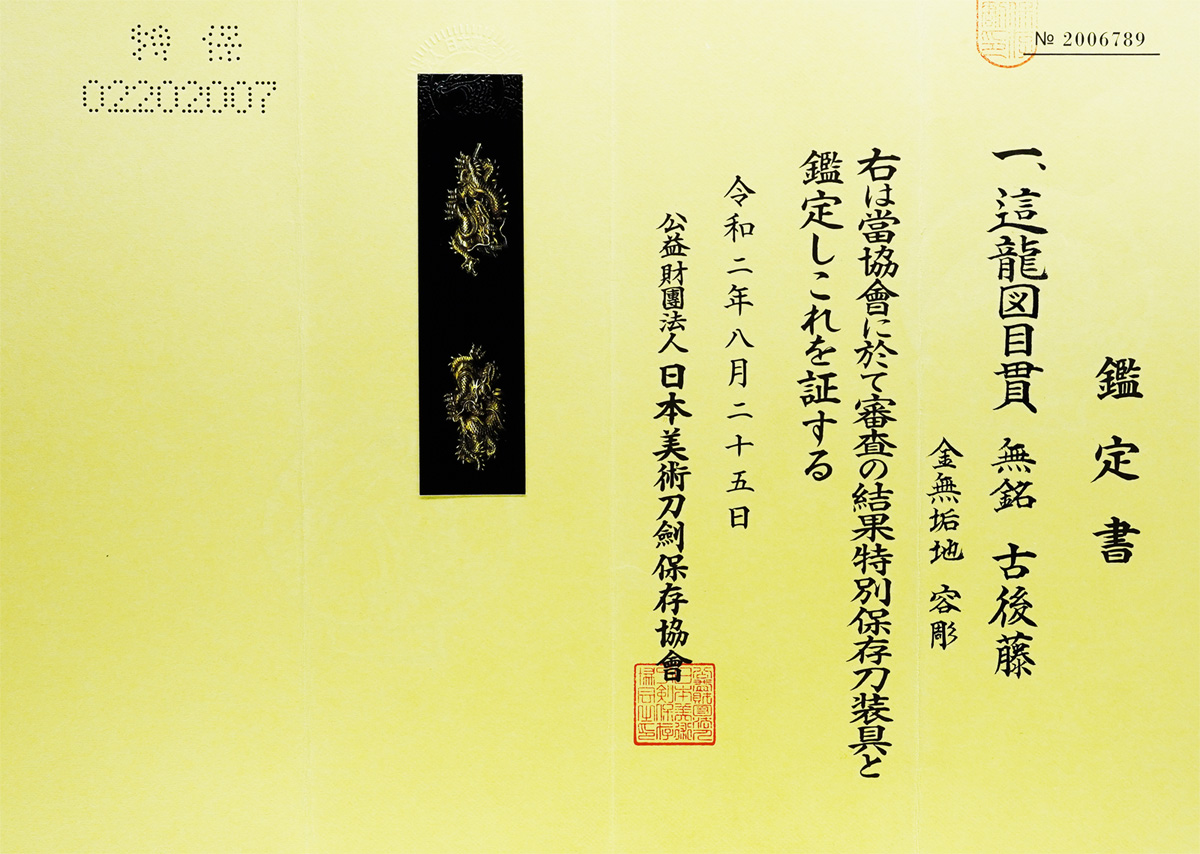 № 2006789
鑑定書
一、這龍図目貫 無銘 古後藤
金無垢地 容彫
右は當協會に於て審査の結果特別保存刀装具と
鑑定しこれを証する
令和二年八月二十五日
公益財團法人 日本美術刀劍保存協會
特保
02202007